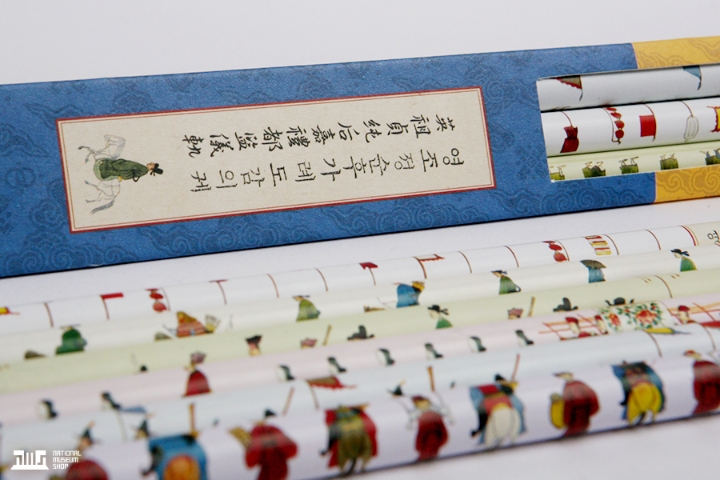 英祖貞純后嘉禮都監儀軌
영조정순후가례도감의궤
NATIONAL
MUSEUM
SHOP